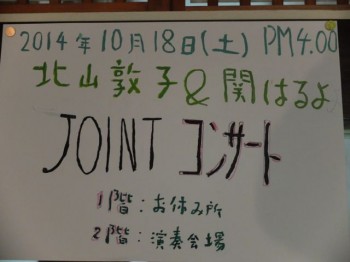 2014年10月18日(土) PM4.00
北山敦子&関はるよ
JOINT コンサート
1階:お休み所
2階:演奏会場